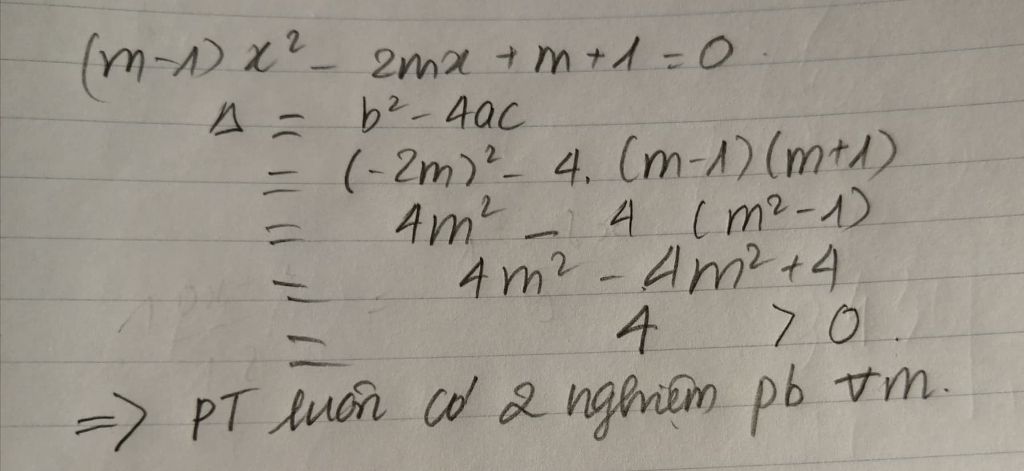 (m-1) x² - 2mx + m + 1 = 0.
Δ = b² - 4ac
= (-2m)² - 4. (m-1)(m+1)
= 4m² - 4 (m²-1)
= 4m² - 4m² + 4
= 4 > 0.
=> PT luôn có 2 nghiệm pb ∀m.